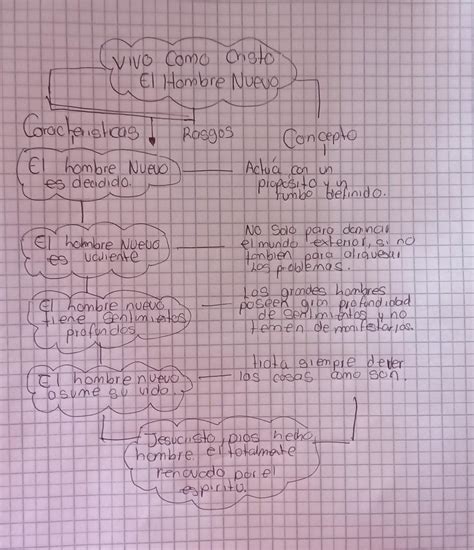 Vivo Como Cristo
El Hombre Nuevo
Caracheristicas
Rasgos
Concepto
El hombre Nuevo
es decidido.
Actúa con un
proposito y un
rumbo definido.
El hombre Nuevo
es valiente
No Solo para dominar
el mundo exterior, si no
tanbien para
los problemas.
El hombre nuevo
tiene Sentimientos
profundos
Los grandes hombres
poseen gran profundidad
de sentimientos y no
temen de manifestarlos.
El hombre nuevo
asume su vida.
trata siempre de ver
las cosas como son.
Jesucristo, Dios hecho,
hombre el totalmente
renovado por el
espiritu.